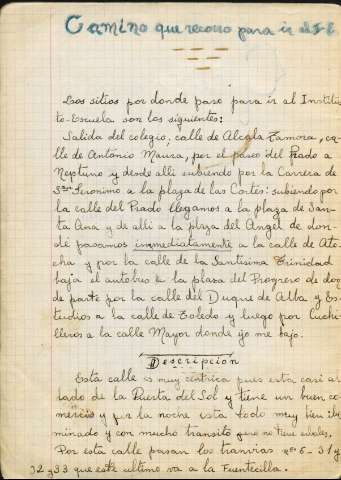 Camino que recorro para ir al I-E
Los sitios por donde paso para ir al Institu
to-Escuela son los siguientes:
Salida del colegio, calle de Alcala Zamora, ca-
lle de Antonio Maura, por el paseo del Prado a
Neptuno y desde alli subiendo por la Carrera de
San Jeronimo a la plaza de las Cortes: subiendo por
la calle del Prado llegamos a la plaza de San-
ta Ana y de alli a la plaza del Angel de don-
de pasamos immediatamente a la calle de Ato-
cha y por la calle de la Santisima Trinidad
baja el autobus a la plasa del Progreso de don
de parte por la calle del Duque de Alba y Es-
tudios a la calle de Toledo y luego por Cuchi-
lleros a la calle Mayor donde yo me bajo.
Descripción
Esta calle es muy centrica pues esta casi al
lado de la Puerta del Sol y tiene un buen co-
mercio y por la noche esta todo muy bien ilu
minado y con mucho transito
Por esta calle pasan los tranvias nos 6 - 31 y
32 y 33 que este ultimo va a la Fuentecilla.